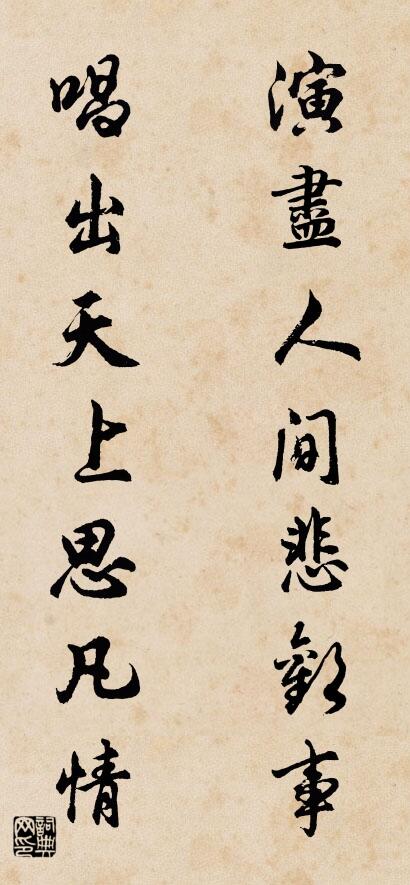 演盡人間悲歡事
唱出天上思凡情
詞典网印